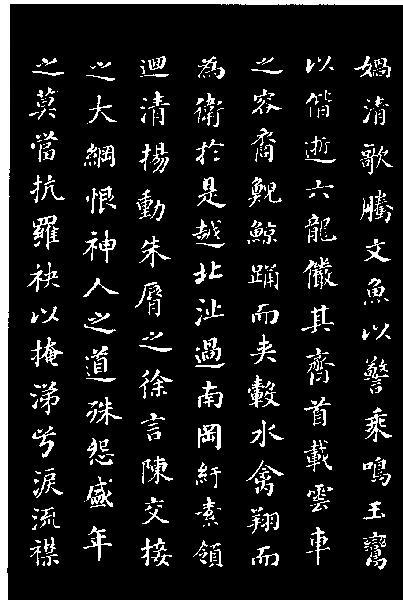 媧清歌騰文魚以警乘鳴玉鸞
以偕逝六龍儼其齊首載雲車
之容裔鯢鯨踊而夾轂水禽翔而
為衛於是越北沚過南岡紆素領
迴清揚動朱脣之徐言陳交接
之大綱恨神人之道殊怨盛年
之莫當抗羅袂以掩涕兮淚流襟